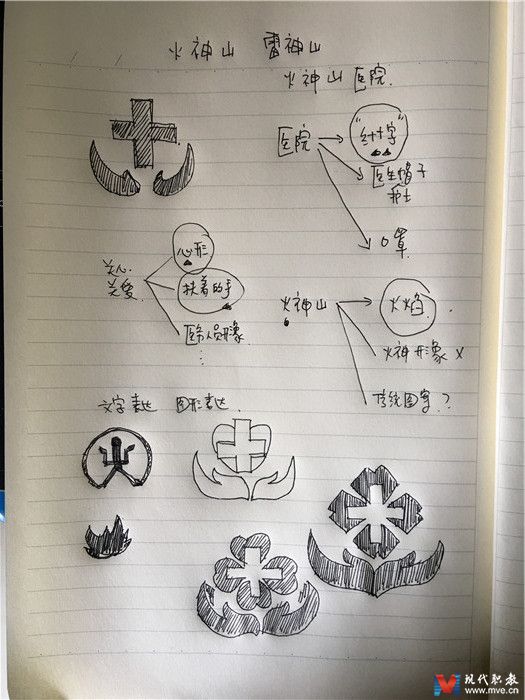 火神山 雷神山
火神山医院
医院
"红十字"
医生帽子
护士
口罩
关心
关爱
心形
扶着的手
医务人员形象
⋮
火神山
火焰
火神形象 ×
传统图案？
文字表达 图形表达
现代职教
www.mve.cn